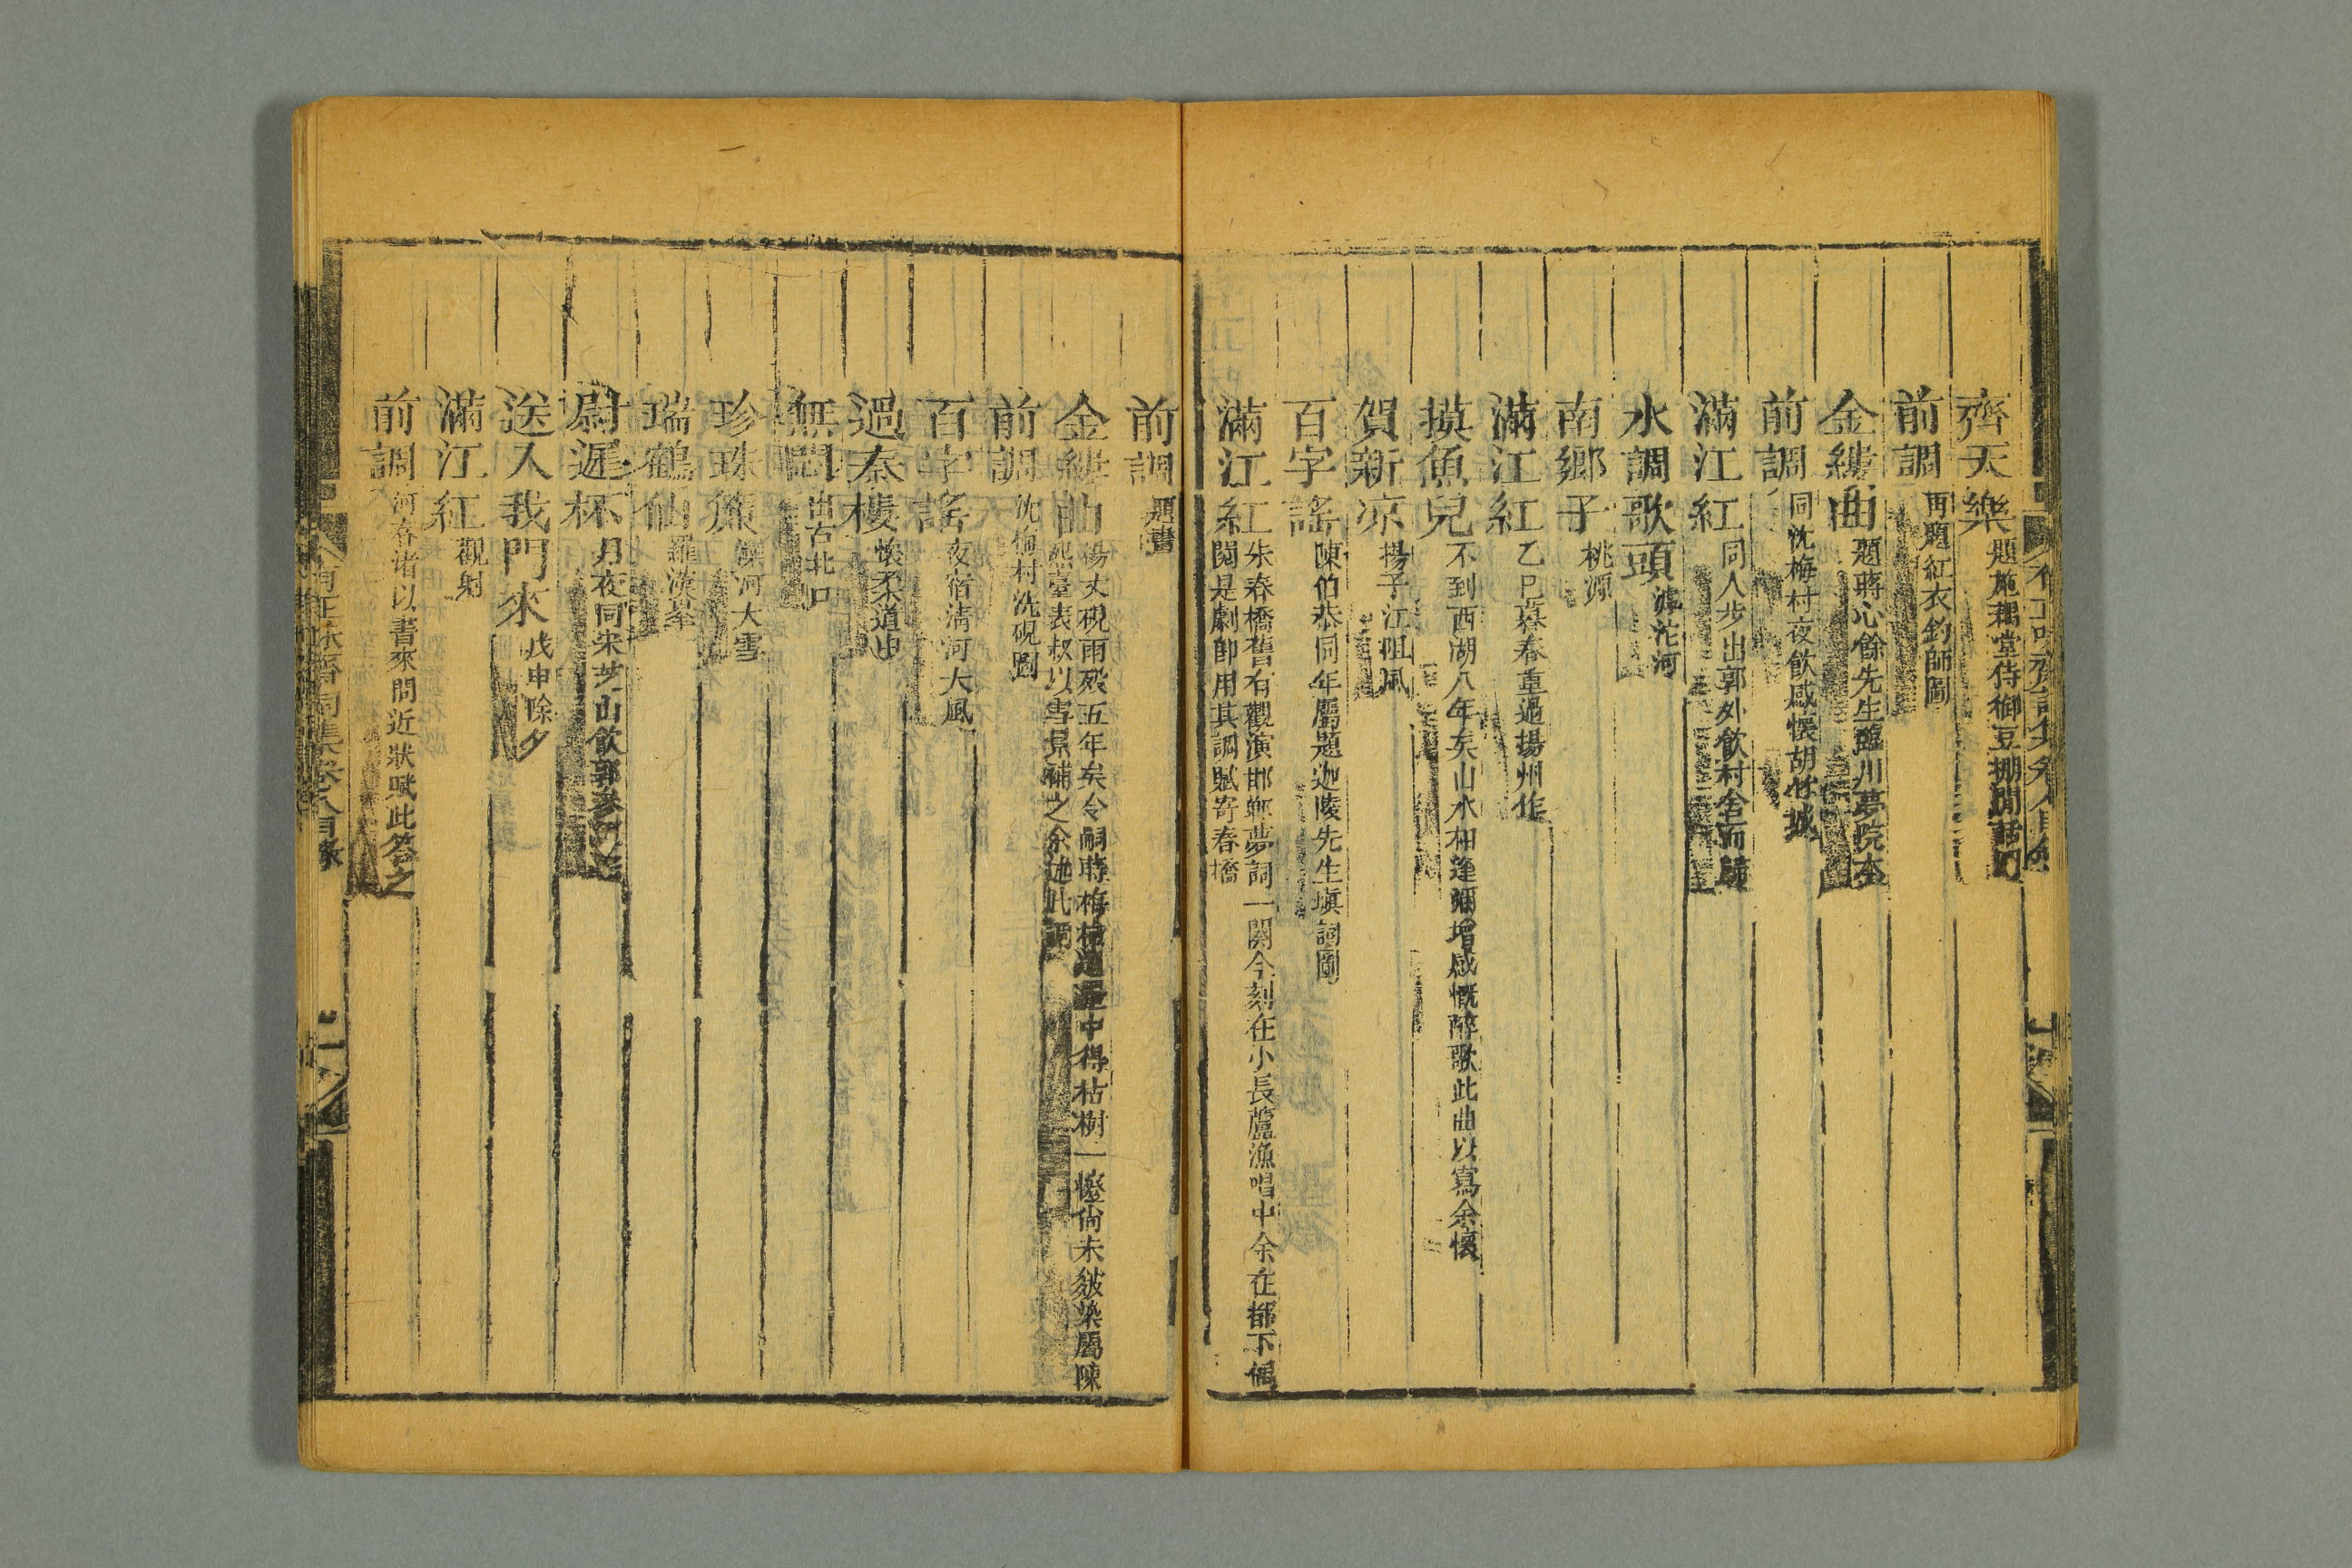 齊天樂 題施耦堂侍御豆棚閒話圖
前調 再題紅衣釣師圖
金縷曲 題蔣心餘先生臨川夢院本
前調 同沈梅村夜飲感懷胡竹城
滿江紅 同人步出郭外飲村舍而歸
水調歌頭 滹沱河
南鄉子 桃源
滿江紅 乙巳暮春重過揚州作
摸魚兒 不到西湖八年矣山水相逢彌增感慨醉歌此曲以寫余懷
賀新涼 揚子江阻風
百字謠 陳伯恭同年屬題迦陵先生塡詞圖
滿江紅 朱春橋舊有觀演邯鄲夢詞一闋今刻在小長蘆漁唱中余在都下偶
閱是劇卽用其調賦寄春橋
前調 題畫
金縷曲 楊丈硯雨歿五年矣令嗣時梅於遺篋中得枯樹一幛尙未皴染屬陳
熙臺表叔以雪景補之余填此調
前調 沈 村洗硯圖
百字謠 夜宿淸河大風
過秦樓 懷柔道中
無悶 出古北口
珍珠簾 灤河大雪
瑞鶴仙 羅漢峯
尉遲杯 月夜同宋芝山飲郭參
送入我門來 戊申除夕
滿江紅 觀射
前調 河 渚以書來問近狀賦此答之
有正味齋詞集卷八目錄